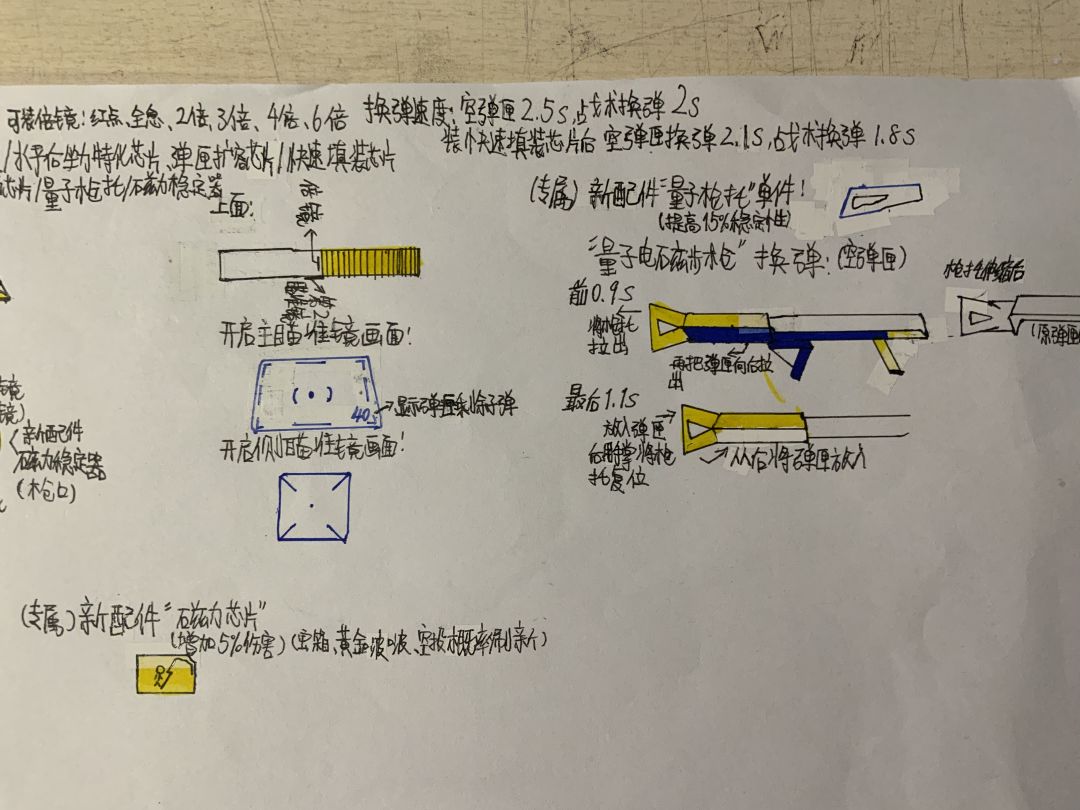 可装倍镜：红点、全息、2倍、3倍、4倍、6倍
换弹速度：空弹匣2.5s,战术换弹2s
装快速填装芯片后 空弹匣换弹2.1s,战术换弹1.8s
/水平后坐力特化芯片、弹匣扩容芯片/快速填装芯片
芯片/量子枪托/磁动稳定器
上面：
开启主瞄准镜画面！
40
→显示弹匣剩余子弹
开启侧瞄准镜画面！
镜
镜)
/新配件
磁力稳定器
(枪口)
(专属)新配件“磁力芯片”
(增加5%伤害)(密箱、黄金波波、空投概率刷新)
(专属)新配件“量子枪托”单件！
(提高15%稳定性)
“量子电磁步枪”换弹：(空弹匣)
前0.9s
将枪托
拉出
再把弹匣向后拉
出
枪托伸缩后
(原弹匣
最后1.1s
放入弹匣
后用掌将枪
托复位
从后将弹匣放入